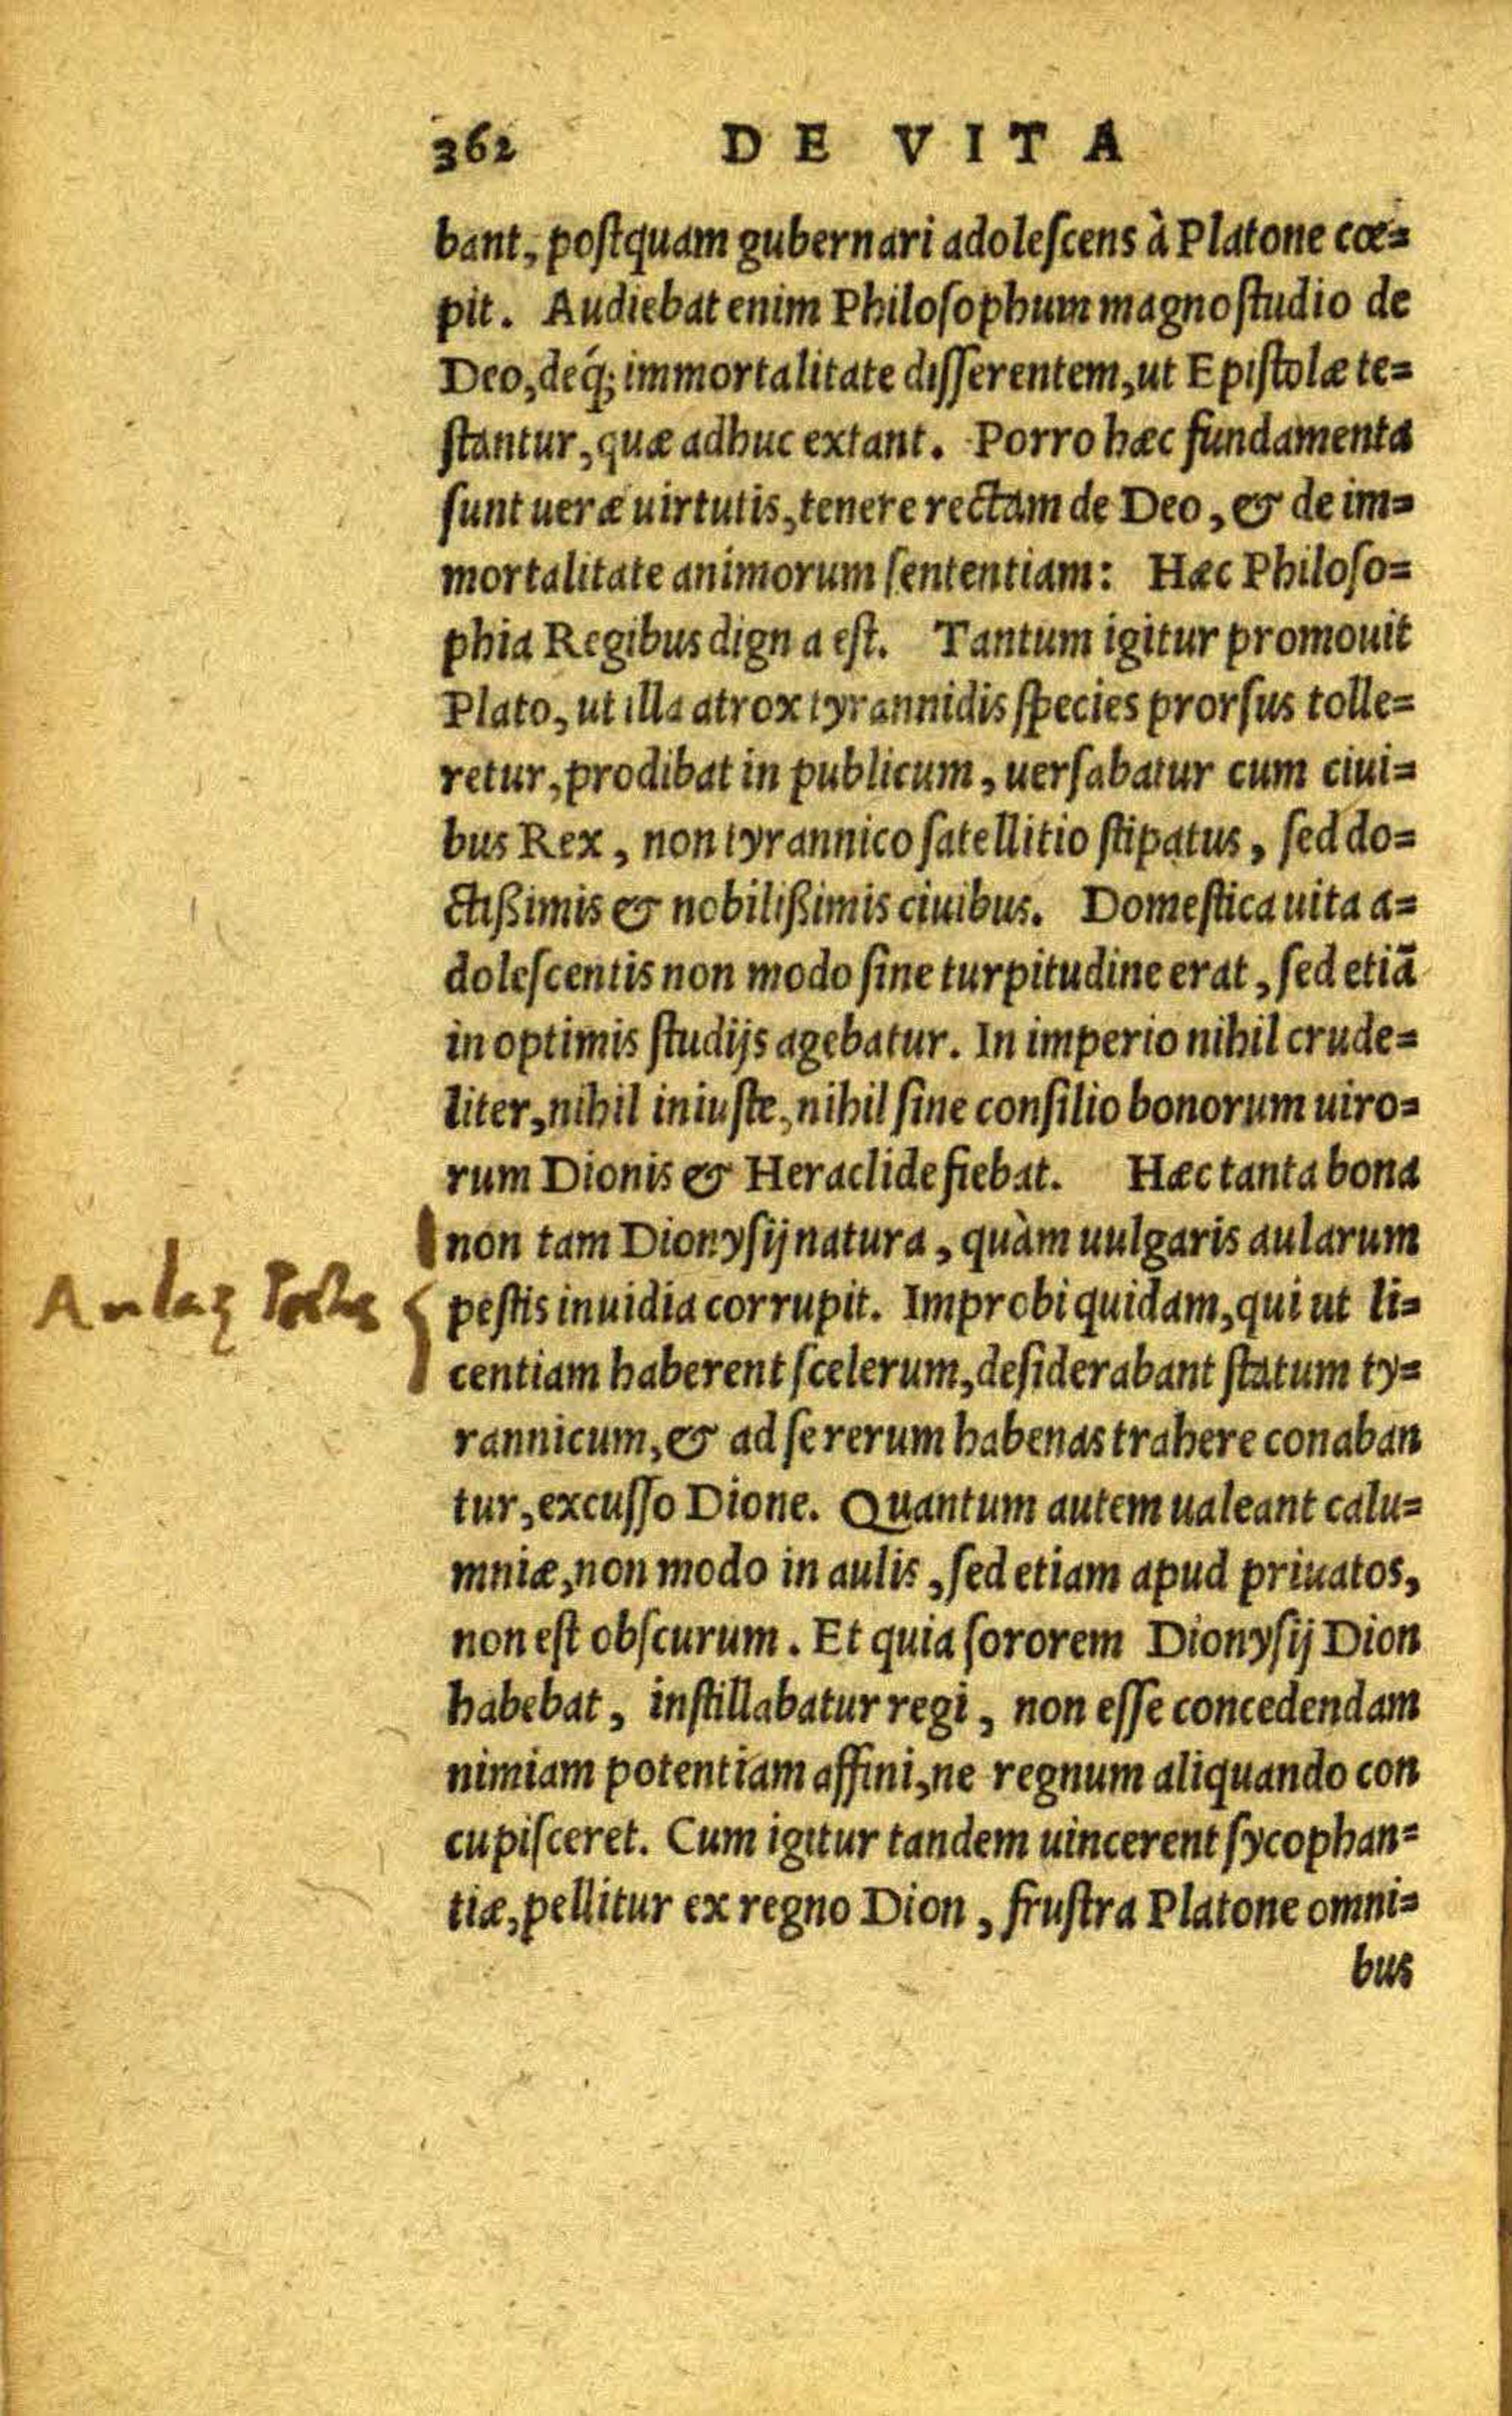 362 DE VITA
bant, postquam gubernari adolescens à Platone cœ=
pit. Audiebat enim Philosophum magno studio de
Deo, deq́; immortalitate disserentem, ut Epistolæ te=
stantur, quæ adhuc extant. Porro hæc fundamenta
sunt ueræ uirtutis, tenere rectam de Deo, & de im=
mortalitate animorum sententiam: Hæc Philoso=
phia Regibus digna est. Tantum igitur promouit
Plato, ut illa atrox tyrannidis species prorsus tolle=
retur, prodibat in publicum, uersabatur cum ciui=
bus Rex, non tyrannico satellitio stipatus, sed do=
ctißimis & nobilißimis ciuibus. Domestica uita a=
dolescentis non modo sine turpitudine erat, sed etiã
in optimis studijs agebatur. In imperio nihil crude=
liter, nihil iniuste, nihil sine consilio bonorum uiro=
rum Dionis & Heraclide fiebat. Hæc tanta bona
non tam Dionysij natura, quàm uulgaris aularum
Aulaꝝ
pestis inuidia corrupit. Improbi quidam, qui ut li=
centiam haberent scelerum, desiderabant statum ty=
rannicum, & ad se rerum habenas trahere conaban
tur, excusso Dione. Quantum autem ualeant calu=
mniæ, non modo in aulis, sed etiam apud priuatos,
non est obscurum. Et quia sororem Dionysij Dion
habebat, instillabatur regi, non esse concedendam
nimiam potentiam affini, ne regnum aliquando con
cupisceret. Cum igitur tandem uincerent sycophan=
tiæ, pellitur ex regno Dion, frustra Platone omni=
bus